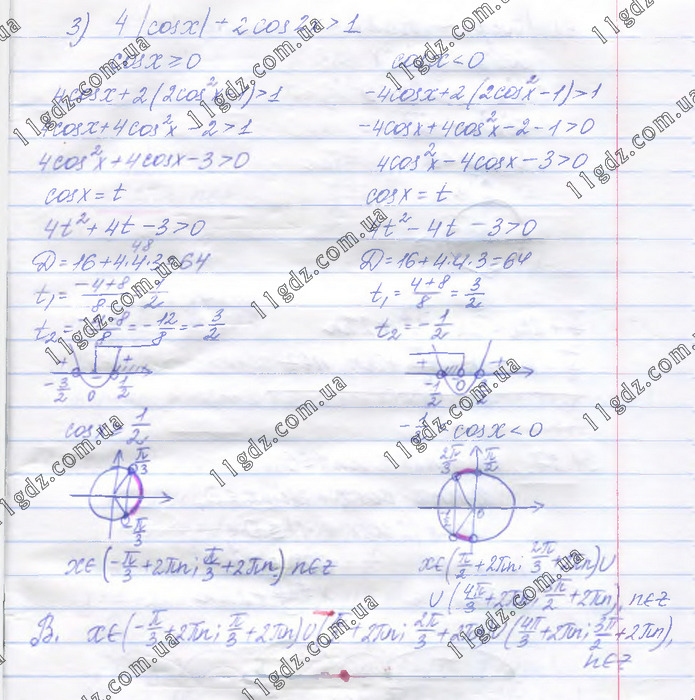 3) 4|cosx| + 2cos2x > 1
cosx ≥ 0
4cosx + 2(2cos²x-1) > 1
4cosx + 4cos²x - 2 > 1
4cos²x + 4cosx - 3 > 0
cosx = t
4t² + 4t - 3 > 0
48
D = 16 + 4·4·3 = 64
t₁ = (-4+8)/8 = 1/2
t₂ = (-4-8)/8 = -12/8 = -3/2
+ - +
-3/2 0 1/2
cosx > 1/2
π/3
-π/3
x∈(-π/3 + 2πn; π/3 + 2πn) n∈z
cosx < 0
-4cosx + 2(2cos²x - 1) > 1
-4cosx + 4cos²x - 2 - 1 > 0
4cos²x - 4cosx - 3 > 0
cosx = t
4t² - 4t - 3 > 0
D = 16 + 4·4·3 = 64
t₁ = (4+8)/8 = 3/2
t₂ = -1/2
+ +
-1/2 0 3/2
cosx < 0
2π/3 π/2
0
x∈(π/2 + 2πn; 2π/3 + 2πn) ∪
∪ (4π/3 + 2πn; 3π/2 + 2πn), n∈z
В. x∈(-π/3 + 2πn; π/3 + 2πn) ∪ (π/2 + 2πn; 2π/3 + 2πn) ∪ (4π/3 + 2πn; 3π/2 + 2πn),
n∈z
11gdz.com.ua